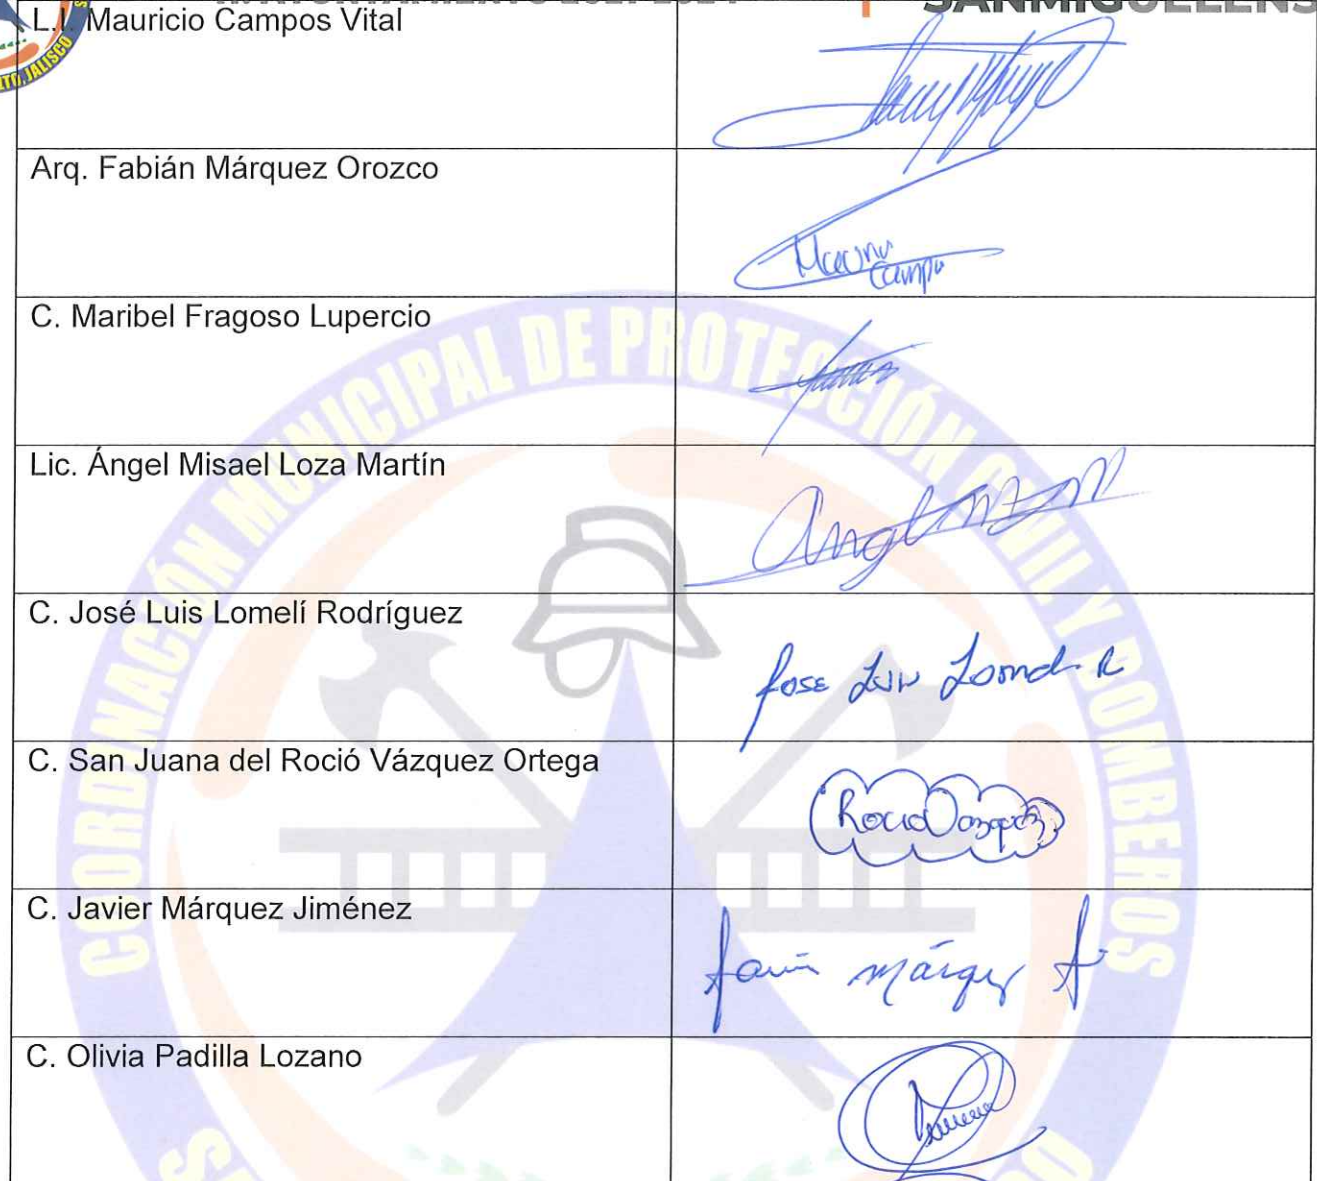 H. AYUNTAMIENTO 2021-2024
SANMIGUELENS
TO, JALISCO
L.I. Mauricio Campos Vital
Arq. Fabián Márquez Orozco
Mauricio
Campos
C. Maribel Fragoso Lupercio
Lic. Ángel Misael Loza Martín
C. José Luis Lomelí Rodríguez
Jose Luis Lomelí R
C. San Juana del Roció Vázquez Ortega
Rocio Vazquez
C. Javier Márquez Jiménez
Javier Márquez J
C. Olivia Padilla Lozano
COORDINACIÓN MUNICIPAL DE PROTECCIÓN CIVIL Y BOMBEROS